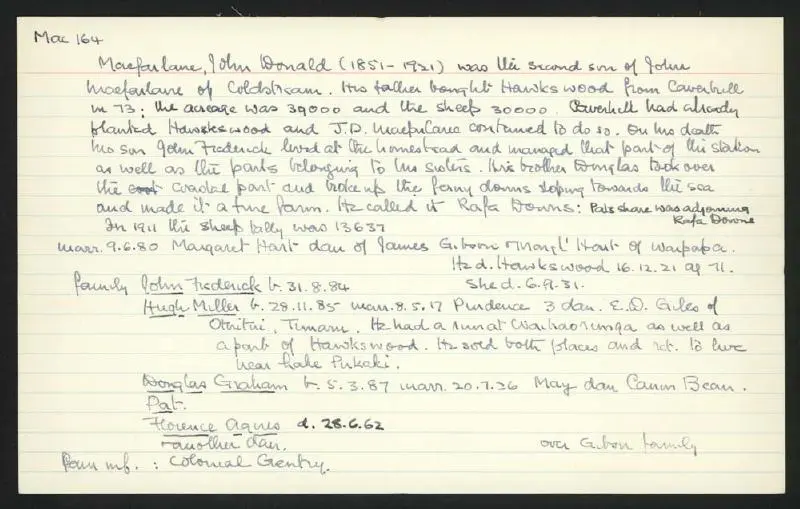 Mac 164
Macfarlane, John Donald (1851-1921) was the second son of John
Macfarlane of Coldstream. His father bought Hawkswood from Caverhill
in 73; the acreage was 39000 and the sheep 30000. Caverhill had already
planted Hawkswood and J.D. Macfarlane continued to do so. On his death
his son John Frederick lived at the homestead and managed that part of the station
as well as the parts belonging to his sisters. His brother Douglas took over
the part and broke up the ferny downs sloping towards the sea
and made it a fine farm. He called it Rafa Downs: Pats share was adjoining
Rafa Downs
In 1911 the sheep tally was 13637
marr. 9.6.80 Margaret Hart dau of James Gibson & Margt Hart of
He d. Hawkswood 16.12.21 ag 71.
She d. 6.9.31.
family John Frederick b. 31.8.84
Hugh Miller b. 28.11.85 marr. 8.5.17 Prudence 3 dau. E.D. Giles of
Otitai, Timaru. He had a run at as well as
a part of Hawkswood. He sold both places and ret. to live
near Lake Pukaki.
Douglas Graham b. 5.3.87 marr. 20.7.26 May dau Canon Bean.
Pat.
Florence Agnes d. 28.6.62
another dau.
over Gibson family
Fam inf. : Colonial Gentry.